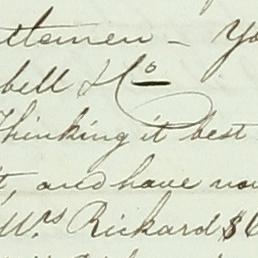 ttemen - Yo
bell & Co
Thinking it best
t, and have
Mrs Rickard $